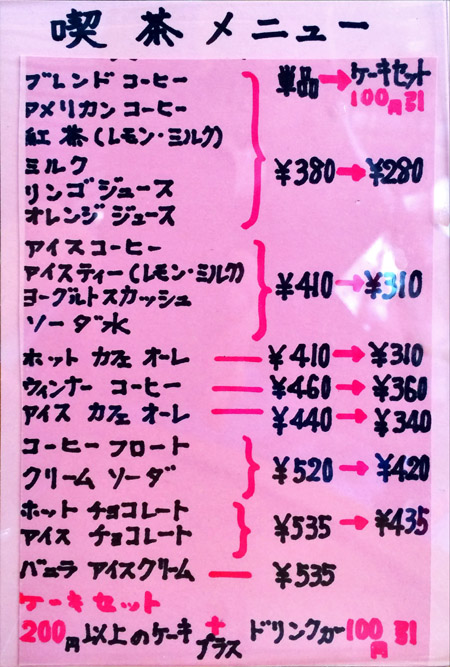 喫茶メニュー
単品→ケーキセット
100円引
ブレンド コーヒー
アメリカン コーヒー
紅茶(レモン・ミルク)
ミルク ¥380→¥280
リンゴ ジュース
オレンジ ジュース
アイスコーヒー
アイスティー(レモン・ミルク) ¥410→¥310
ヨーグルトスカッシュ
ソーダ水
ホット カフェ オーレ — ¥410→¥310
ウィンナー コーヒー — ¥460→¥360
アイス カフェ オーレ — ¥440→¥340
コーヒー フロート
クリーム ソーダ ¥520→¥420
ホット チョコレート
アイス チョコレート ¥535→¥435
バニラ アイスクリーム — ¥535
ケーキセット
200円以上のケーキ+プラスドリンクが100円引